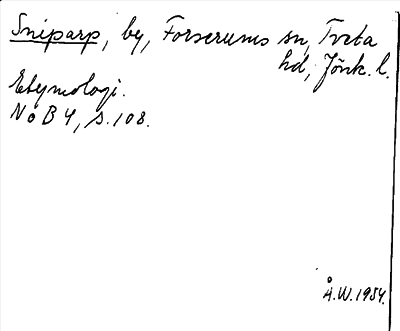 Sniparp, by, Forserums sn, Tveta
hd, Jönk. l.
Etymologi.
NoB 4, s. 108.
Å.W. 1954.